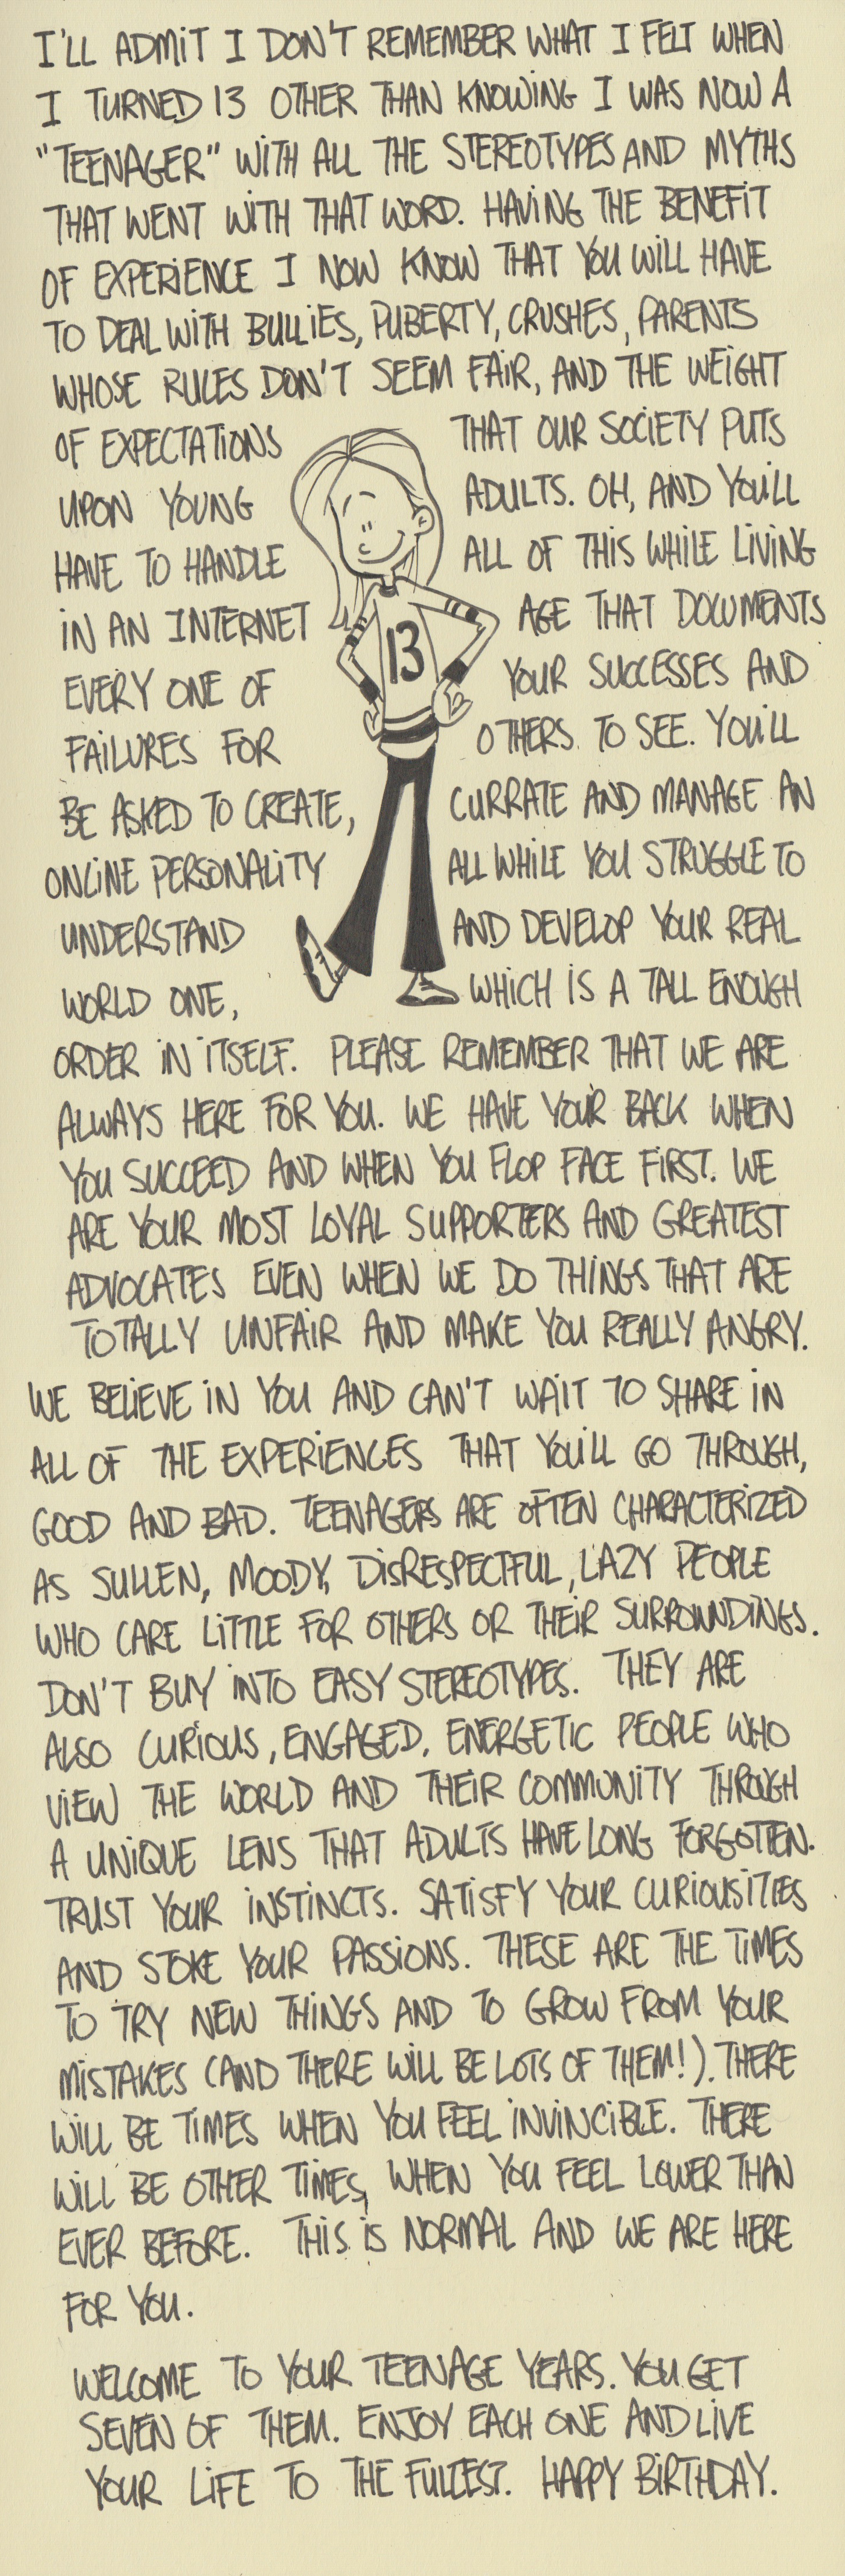 I'LL ADMIT I DON'T REMEMBER WHAT I FELT WHEN
I TURNED 13 OTHER THAN KNOWING I WAS NOW A
"TEENAGER" WITH ALL THE STEREOTYPES AND MYTHS
THAT WENT WITH THAT WORD. HAVING THE BENEFIT
OF EXPERIENCE I NOW KNOW THAT YOU WILL HAVE
TO DEAL WITH BULLIES, PUBERTY, CRUSHES, PARENTS
WHOSE RULES DON'T SEEM FAIR, AND THE WEIGHT
OF EXPECTATIONS THAT OUR SOCIETY PUTS
UPON YOUNG ADULTS. OH, AND YOU'LL
HAVE TO HANDLE ALL OF THIS WHILE LIVING
IN AN INTERNET AGE THAT DOCUMENTS
13
EVERY ONE OF YOUR SUCCESSES AND
FAILURES FOR OTHERS TO SEE. YOU'LL
BE ASKED TO CREATE, CURRATE AND MANAGE AN
ONLINE PERSONALITY ALL WHILE YOU STRUGGLE TO
UNDERSTAND AND DEVELOP YOUR REAL
WORLD ONE, WHICH IS A TALL ENOUGH
ORDER IN ITSELF. PLEASE REMEMBER THAT WE ARE
ALWAYS HERE FOR YOU. WE HAVE YOUR BACK WHEN
YOU SUCCEED AND WHEN YOU FLOP FACE FIRST. WE
ARE YOUR MOST LOYAL SUPPORTERS AND GREATEST
ADVOCATES EVEN WHEN WE DO THINGS THAT ARE
TOTALLY UNFAIR AND MAKE YOU REALLY ANGRY.
WE BELIEVE IN YOU AND CAN'T WAIT TO SHARE IN
ALL OF THE EXPERIENCES THAT YOU'LL GO THROUGH,
GOOD AND BAD. TEENAGERS ARE OFTEN CHARACTERIZED
AS SULLEN, MOODY, DISRESPECTFUL, LAZY PEOPLE
WHO CARE LITTLE FOR OTHERS OR THEIR SURROUNDINGS.
DON'T BUY INTO EASY STEREOTYPES. THEY ARE
ALSO CURIOUS, ENGAGED, ENERGETIC PEOPLE WHO
VIEW THE WORLD AND THEIR COMMUNITY THROUGH
A UNIQUE LENS THAT ADULTS HAVE LONG FORGOTTEN.
TRUST YOUR INSTINCTS. SATISFY YOUR CURIOUSITIES
AND STOKE YOUR PASSIONS. THESE ARE THE TIMES
TO TRY NEW THINGS AND TO GROW FROM YOUR
MISTAKES (AND THERE WILL BE LOTS OF THEM!). THERE
WILL BE TIMES WHEN YOU FEEL INVINCIBLE. THERE
WILL BE OTHER TIMES, WHEN YOU FEEL LOWER THAN
EVER BEFORE. THIS IS NORMAL AND WE ARE HERE
FOR YOU.
WELCOME TO YOUR TEENAGE YEARS. YOU GET
SEVEN OF THEM. ENJOY EACH ONE AND LIVE
YOUR LIFE TO THE FULLEST. HAPPY BIRTHDAY.